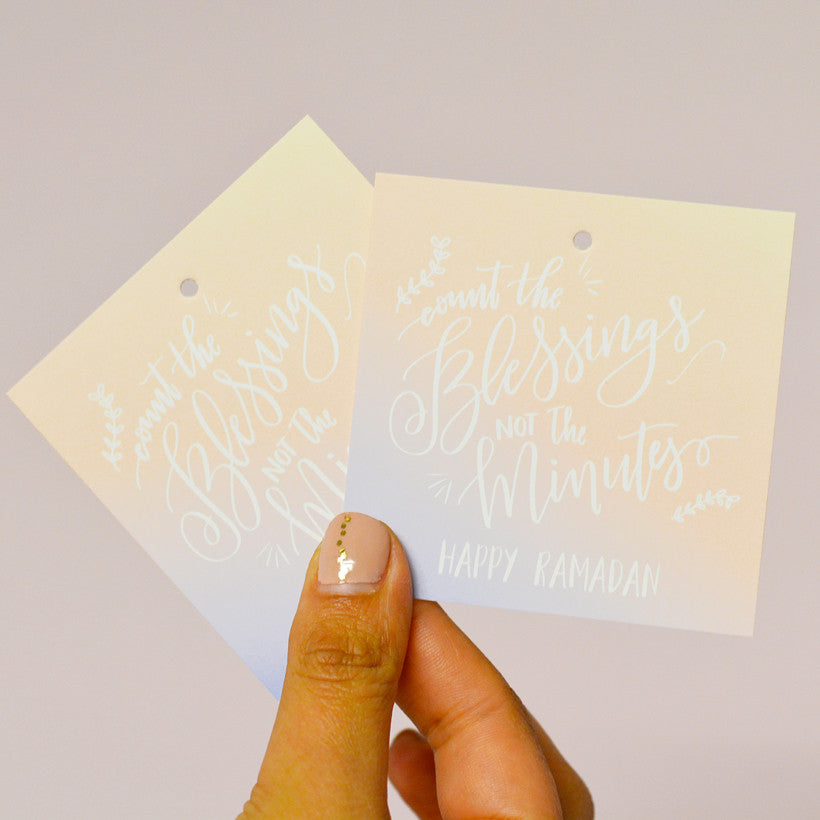 count the
Blessings
NOT The
Minutes
HAPPY RAMADAN
count the
Blessings
NOT The
Minu